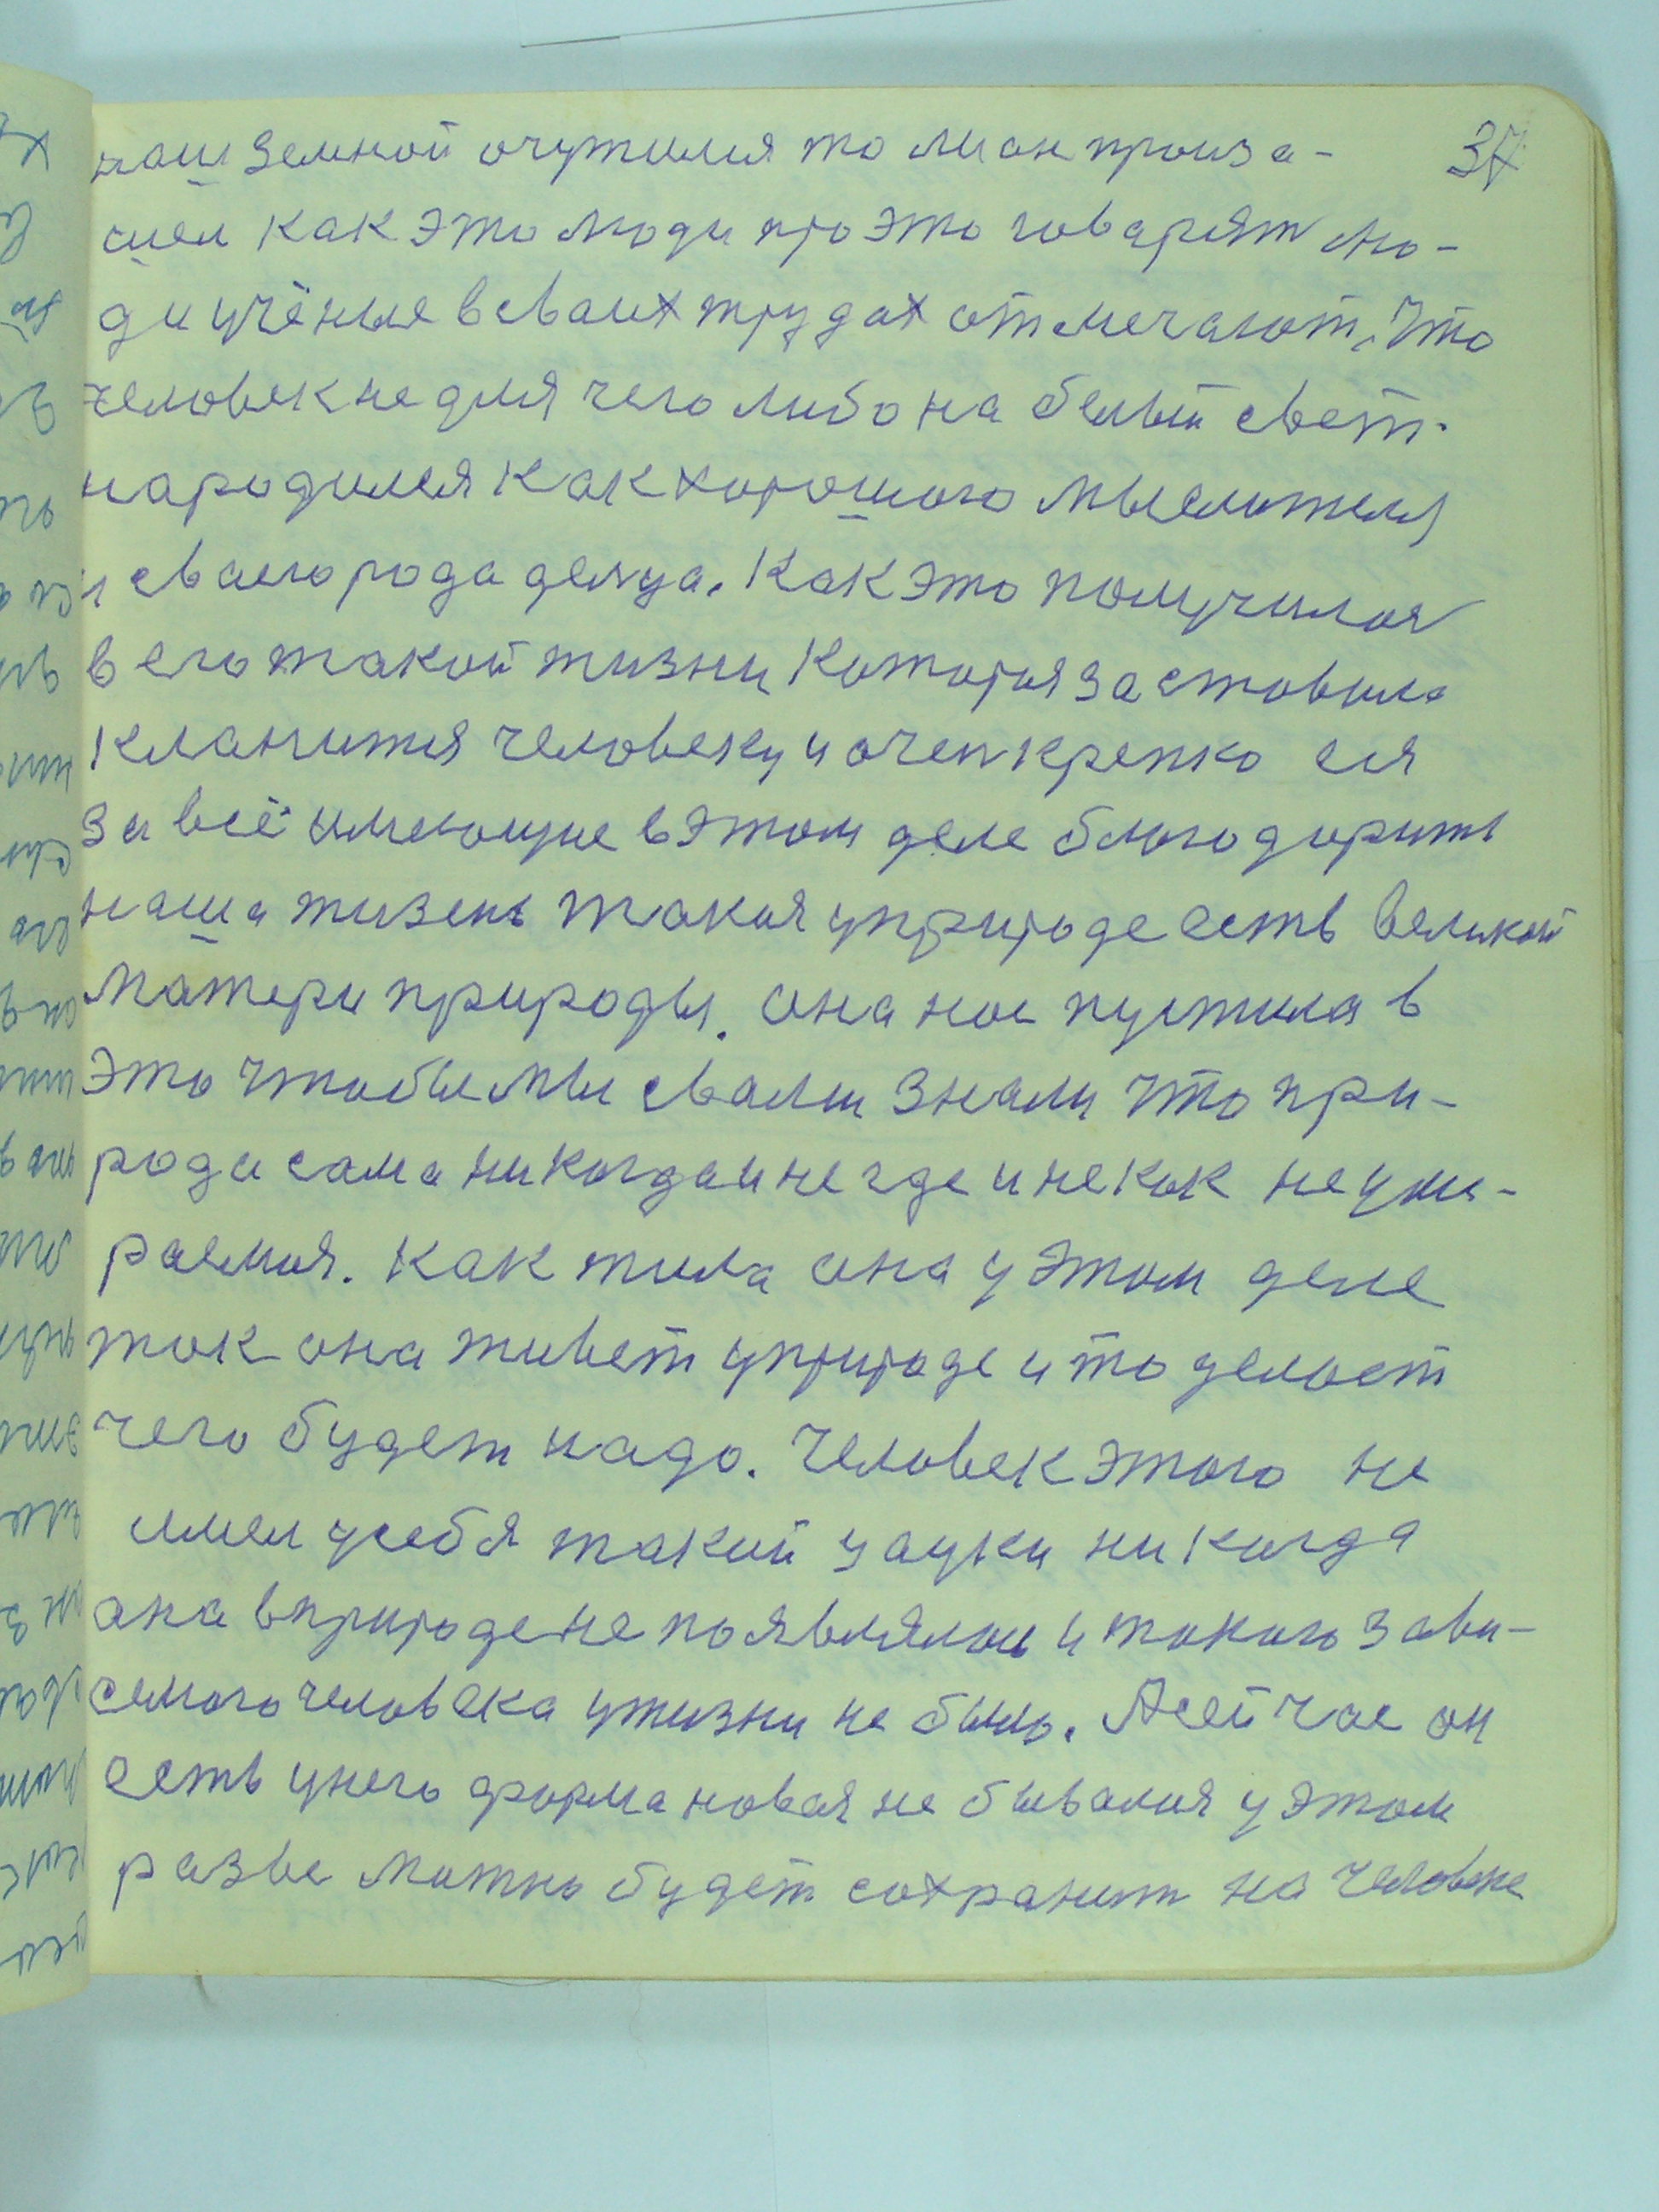 наш земной очутился то ли он произа- 37
шел как это люди про это говарят лю-
ди учёные в сваих трудах отмечают, что
человек не для чего либо на белый свет
народился как хорошого мыслителя
и сваего рода делца. Как это получилося
в его такой жизни которая заставила
кланится человеку и очен крепко ея
за всё имеющие в этом деле благодарить
наша жизень такая у природе есть великой
матери природы. она нас пустила в
это чтобы мы свами знали что при-
рода сама никогда и не где и не как не уми-
раемая. Как жила она у этом деле
так она живет у природе и то делает
чего будет надо. Человек этого не
имел у себя такий науки никогда
она в природе не появлялась и такого зави-
семого человека у жизни не было. А сейчас он
есть у него форма новая не бывалая у этом
разве можно будет сохранит на человеке